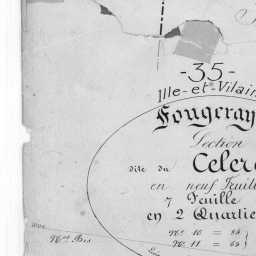 -35-
Ille-et-Vilain
Fougeray
Section
dite du Celer
en neuf Feuil
7 Feuille
en 2 Quartie
N° 10 = 84
N° 11 = 65
N° Bis